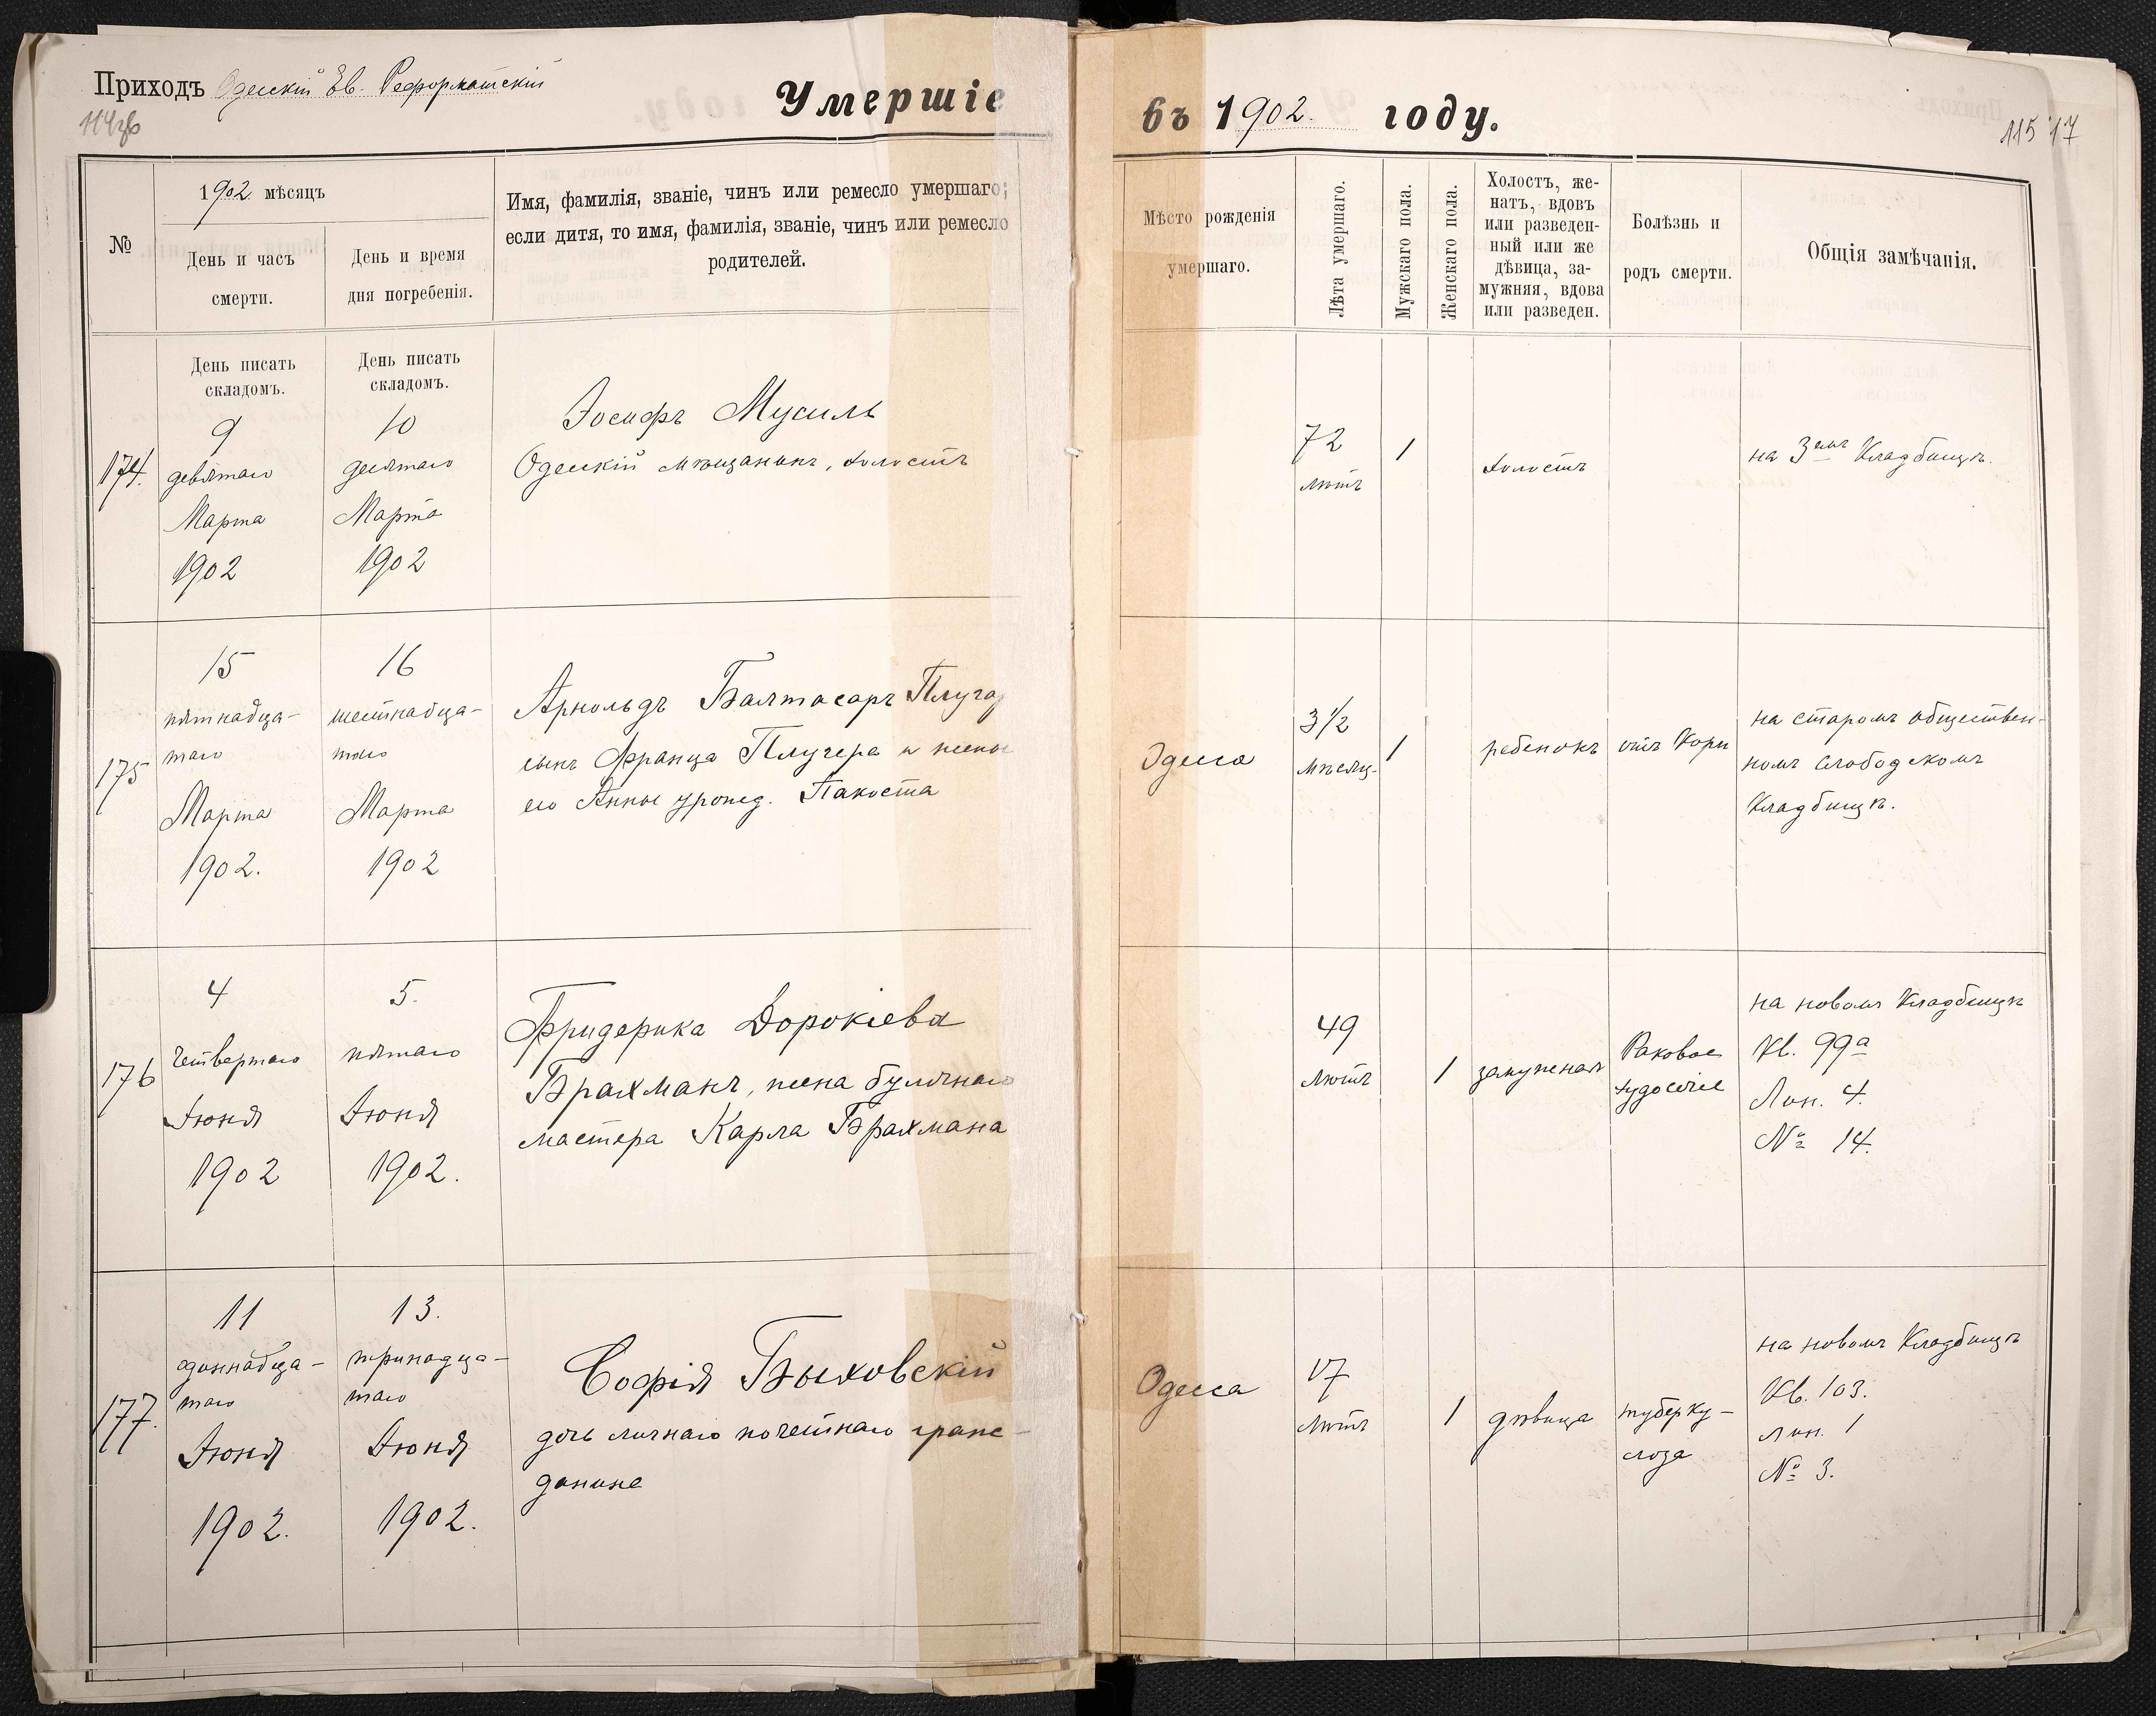 Приходъ Одесскій Ев. Реформатскій
114зв
Умершіе
въ 1902. году.
115 17
№
1902 мѣсяцъ
День и часъ
смерти.
День и время
дня погребенія.
Имя, фамилія, званіе, чинъ или ремесло умершаго;
если дитя, то имя, фамилія, званіе, чинъ или ремесло
родителей.
Мѣсто рожденія
умершаго.
Лѣта умершаго.
Мужскаго пола.
Женскаго пола.
Холостъ, же-
натъ, вдовъ
или разведен-
ный или же
дѣвица, за-
мужняя, вдова
или разведен.
Болѣзнь и
родъ смерти.
Общія замѣчанія.
День писать
складомъ.
День писать
складомъ.
174.
9
девятаго
Марта
1902
10
десятаго
Марта
1902
Іосифъ Мусиль
Одесскій мѣщанинъ, холостъ
72
лѣтъ
1
холостъ
на 3емъ Кладбищѣ.
175
15
пятнадца-
таго
Марта
1902.
16
шестнадца-
таго
Марта
1902
Арнольдъ Балтасаръ
сынъ Франца Плугера и жены
его Анны урожд. Пакоста
Одесса
3 1/2
мѣсяц.
1
ребенокъ
отъ Кори
на старомъ обществен-
номъ слободскомъ
Кладбищѣ.
176
4
четвертаго
Іюня
1902
5.
пятаго
Іюня
1902.
Фридерика
Брахманъ, жена булочнаго
мастера Карла Брахмана
49
лѣтъ
1
замужняя
Раковое
на новомъ Кладбищѣ
Кв. 99а
Лин. 4.
№ 14.
177.
11
одиннадца-
таго
Іюня
1902.
13.
тринадца-
таго
Іюня
1902.
Софія Быховскій
дочь личнаго почетнаго граж-
данина
Одесса
17
лѣтъ
1
дѣвица
туберку-
лоза
на новомъ Кладбищѣ
Кв. 103.
лин. 1
№ 3.